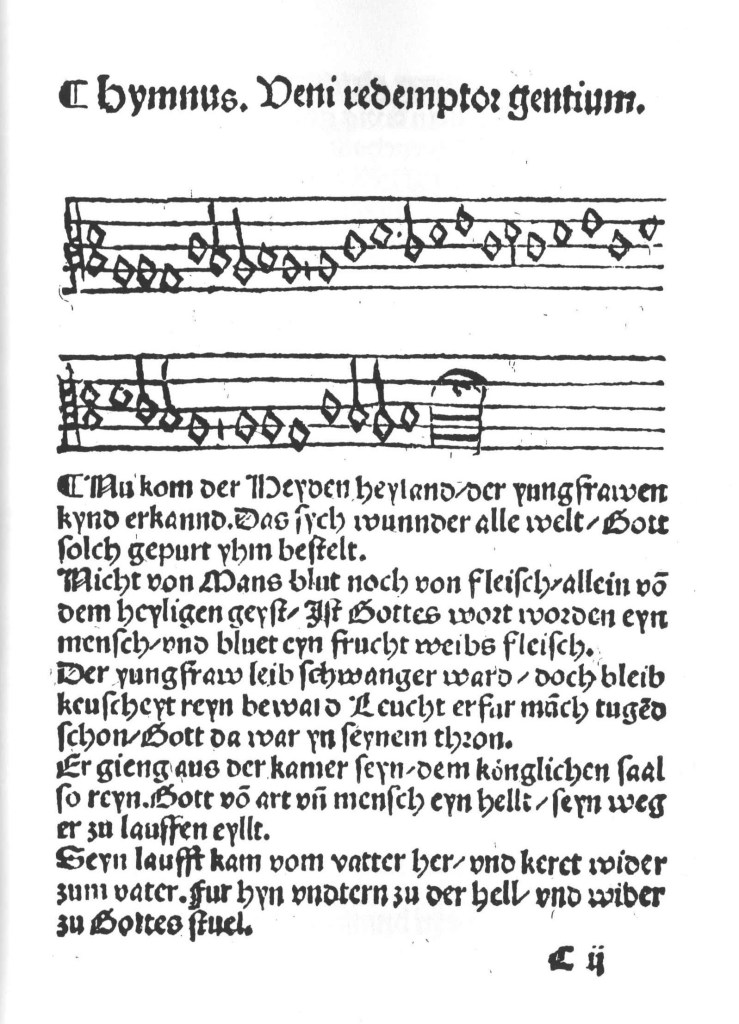 Hymnus. Veni redemptor gentium.
Nu kom der Heyden heyland/der yungfrawen
kynd erkannd.Das sych wunnder alle welt/Gott
solch gepurt yhm bestelt.
Nicht von Mans blut noch von fleisch/allein võ
dem heyligen geyst/Ist Gottes wort worden eyn
mensch/vnd bluet eyn frucht weibs fleisch.
Der yungfraw leib schwanger ward/doch bleib
keuscheyt reyn beward Leucht erfur mãch tugẽd
schon/Gott da war yn seynem thron.
Er gieng aus der kamer seyn/dem konglichen saal
so reyn.Gott võ art vñ mensch eyn hellt/seyn weg
er zu lauffen eyllt.
Seyn laufft kam vom vatter her/vnd keret wider
zum vater.Fur hyn vndtern zu der hell/vnd wider
zu Gottes stuel.
C ij